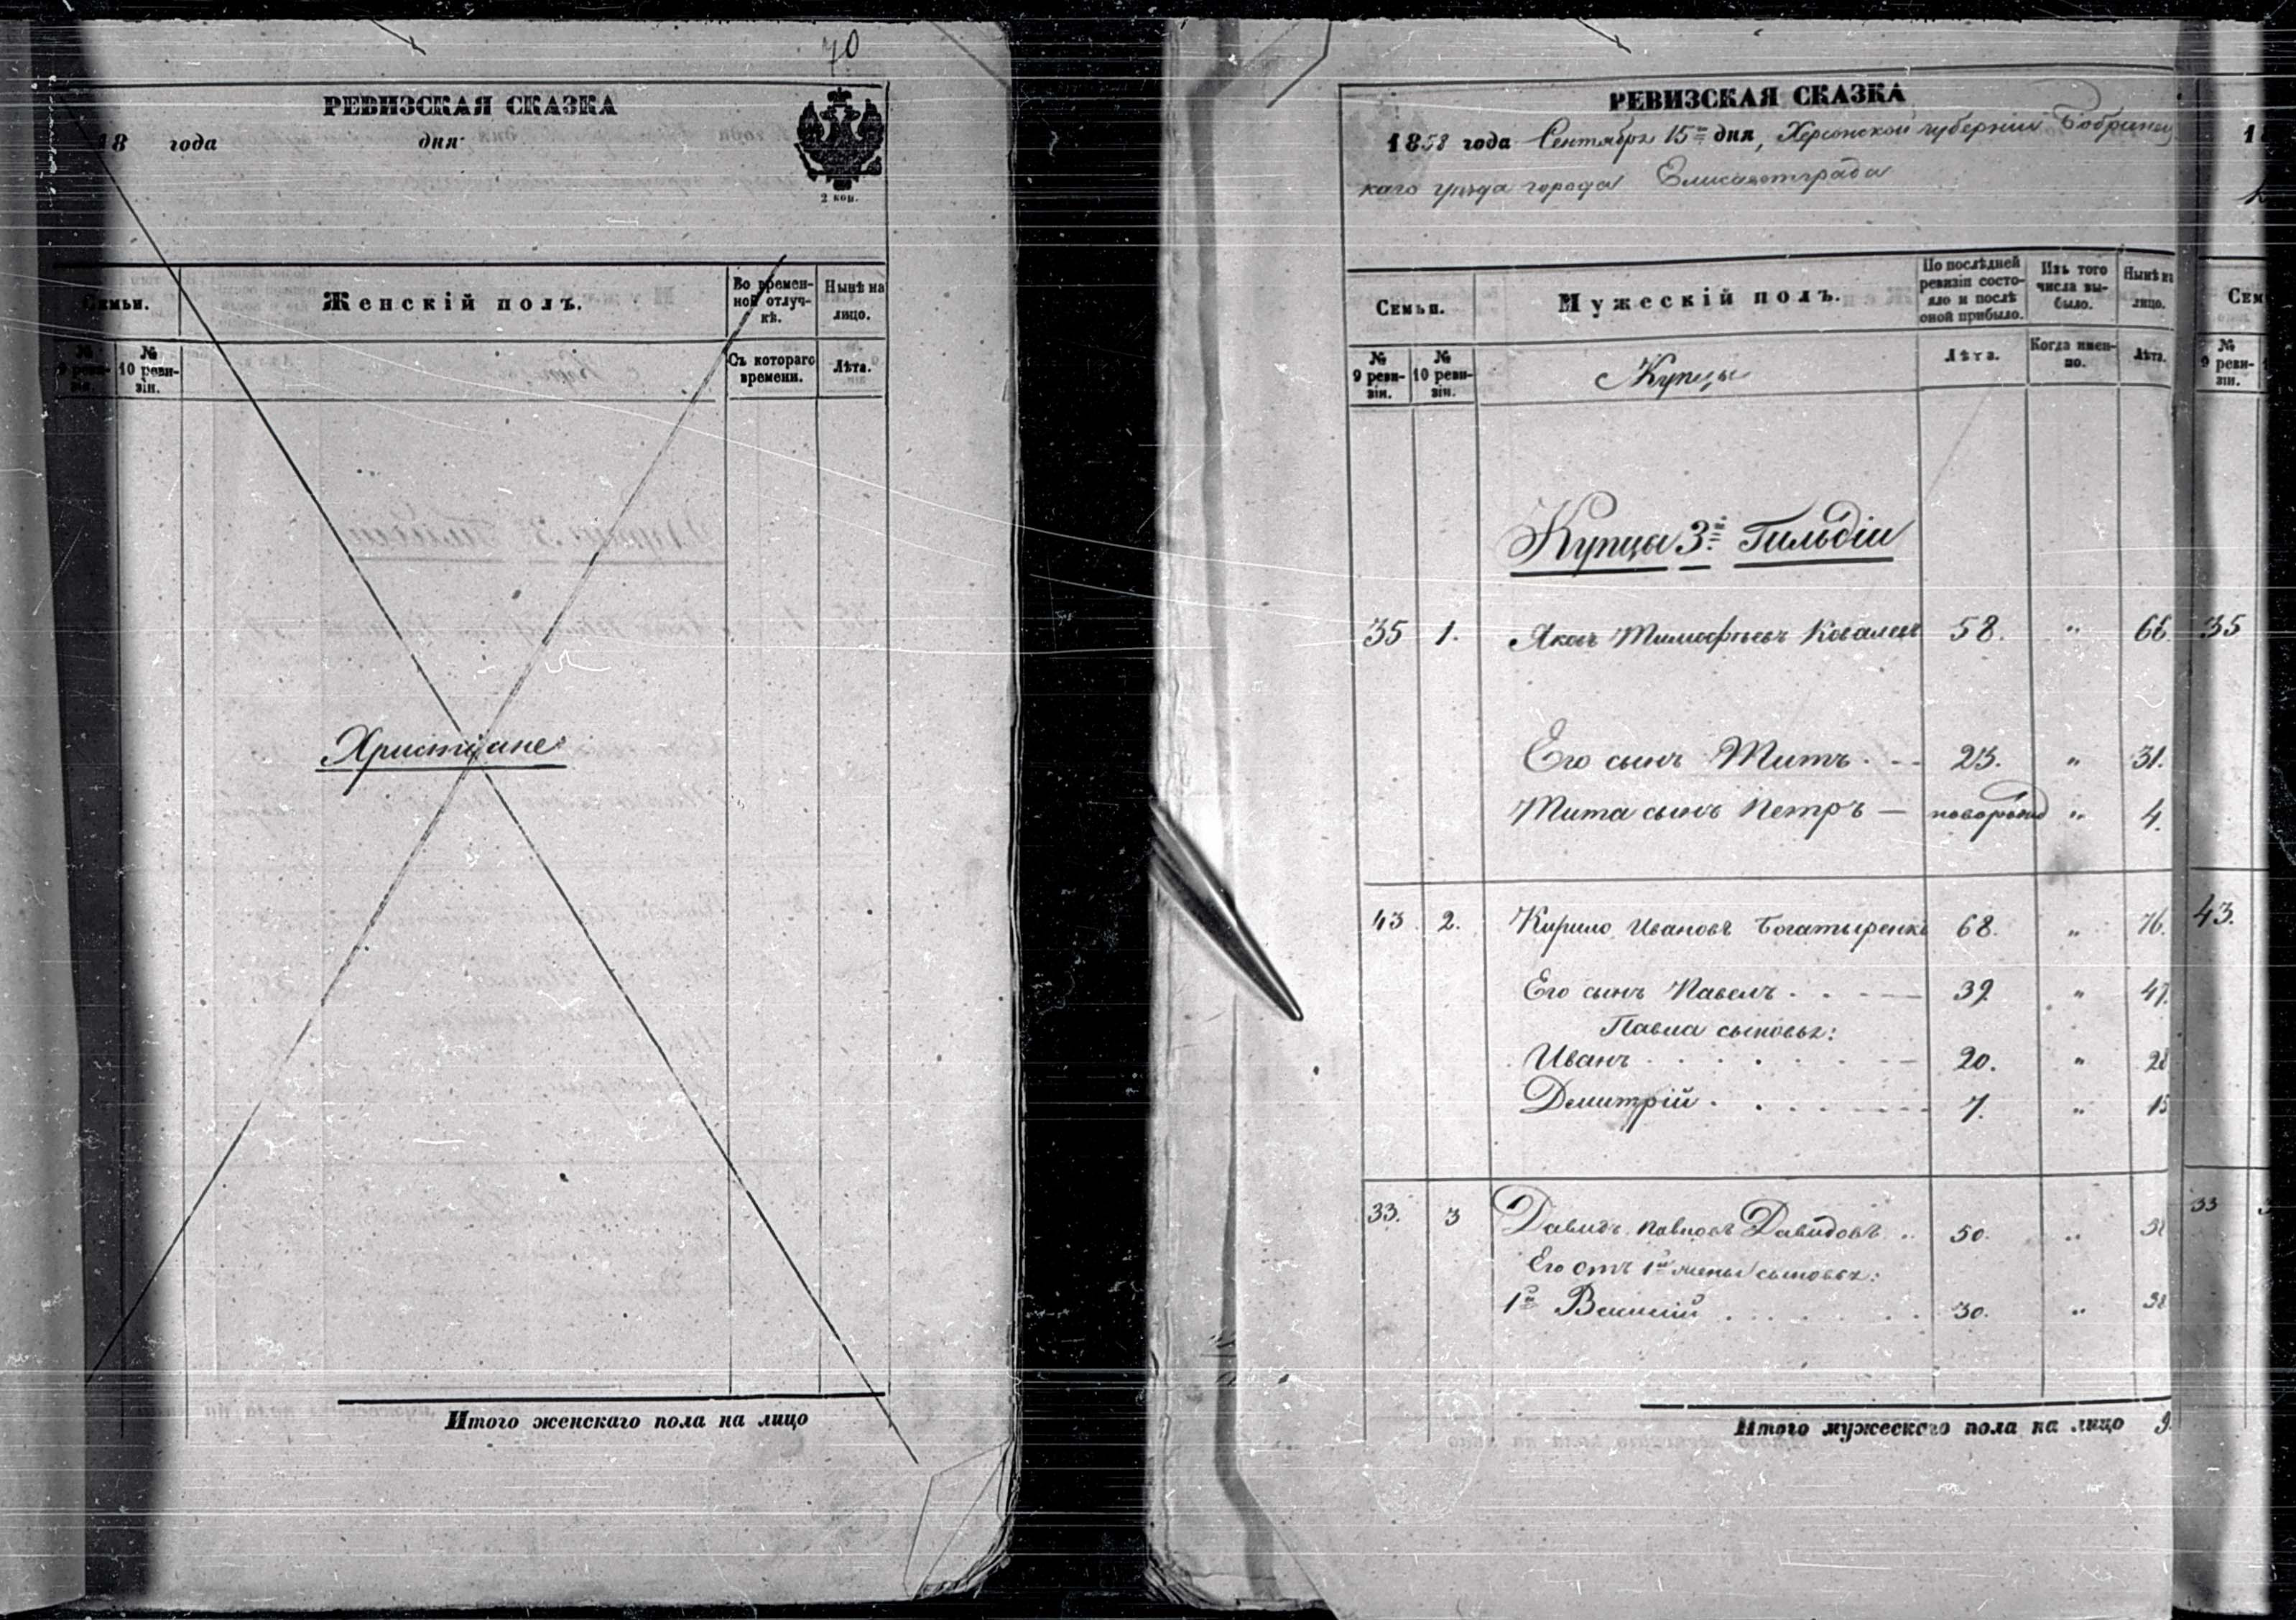 70
РЕВИЗСКАЯ СКАЗКА
18 года дня
2 коп.
Семьи.
Женскій полъ.
Во времен-
ной отлуч-
кѣ.
Нынѣ на
лицо.
№
9 реви-
зіи.
№
10 реви-
зіи.
Съ котораго
времени.
Лѣта.
Христіане
Итого женскаго пола на лицо
РЕВИЗСКАЯ СКАЗКА
1858 года Сентября 15го дня, Херсонской губерніи Бобринец
каго уѣзда города Елисаветграда
Семьи.
Мужескій полъ.
По послѣдней
ревизіи состо-
яло и послѣ
оной прибыло.
Изъ того
числа вы-
было.
Нынѣ на
лицо.
№
9 реви-
зіи.
№
10 реви-
зіи.
Купцы
Лѣта.
Когда имен-
но.
Лѣта.
Купцы 3й Гильдіи
35 1. Яковъ Тимофѣевъ 58. " 66. 35
Его сынъ Титъ 23. " 31.
Тита сынъ Петръ — новорожд " 4.
43 2. Кирило Ивановъ Богатыренко 68. " 76. 43.
Его сынъ Павелъ 39 " 47.
Павла сыновья:
Иванъ 20. " 28
Демитрій 7. " 15
33. 3 Давидъ Павловъ Давидовъ 50. " 58 33 3
Его отъ 1й жены сыновья:
1й Василій 30. " 38
Итого мужескаго пола на лицо 9.
Сем
№
9 реви-
зіи.